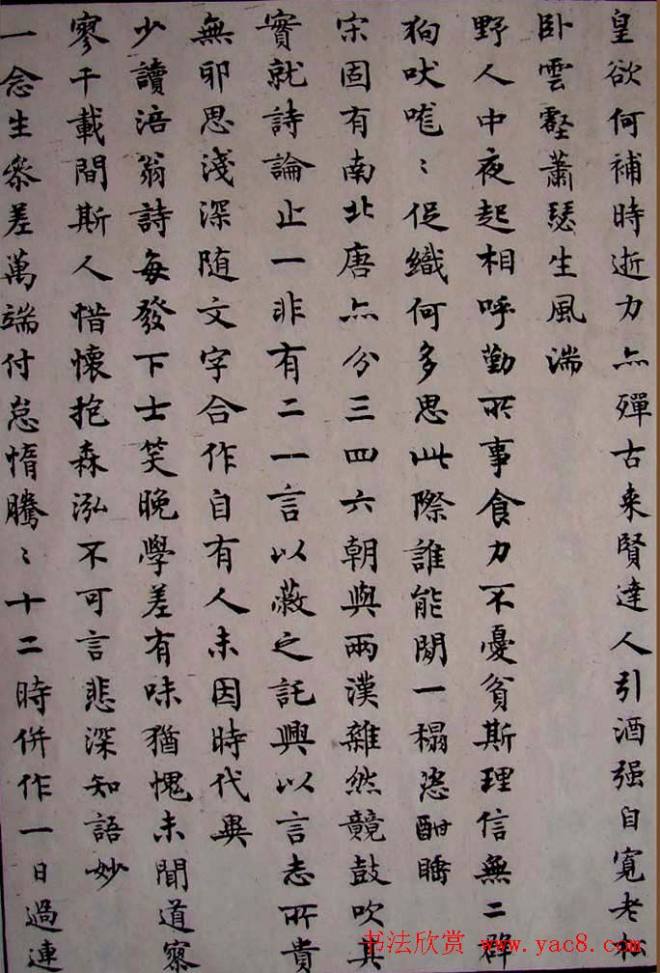 皇欲何補時逝力亦殫古来賢達人引酒强自寬老松
卧雲壑蕭瑟生風湍
野人中夜起相呼勤所事食力不憂貧斯理信無二群
狗吠嘊〻促織何多思此際誰能閒一榻恣酣睡
宋固有南北唐亦分三四六朝與兩漢雜然競鼓吹其
實就詩論止一非有二一言以蔽之託興以言志所貴
無邪思淺深随文字合作自有人未因時代異
少讀涪翁詩每發下士笑晚學差有味猶愧未聞道寂
寥千載間斯人惜懷抱森泓不可言悲深知語妙
一念生参差萬端付怠惰騰〻十二時併作一日過連
书法欣赏 www.yac8.com